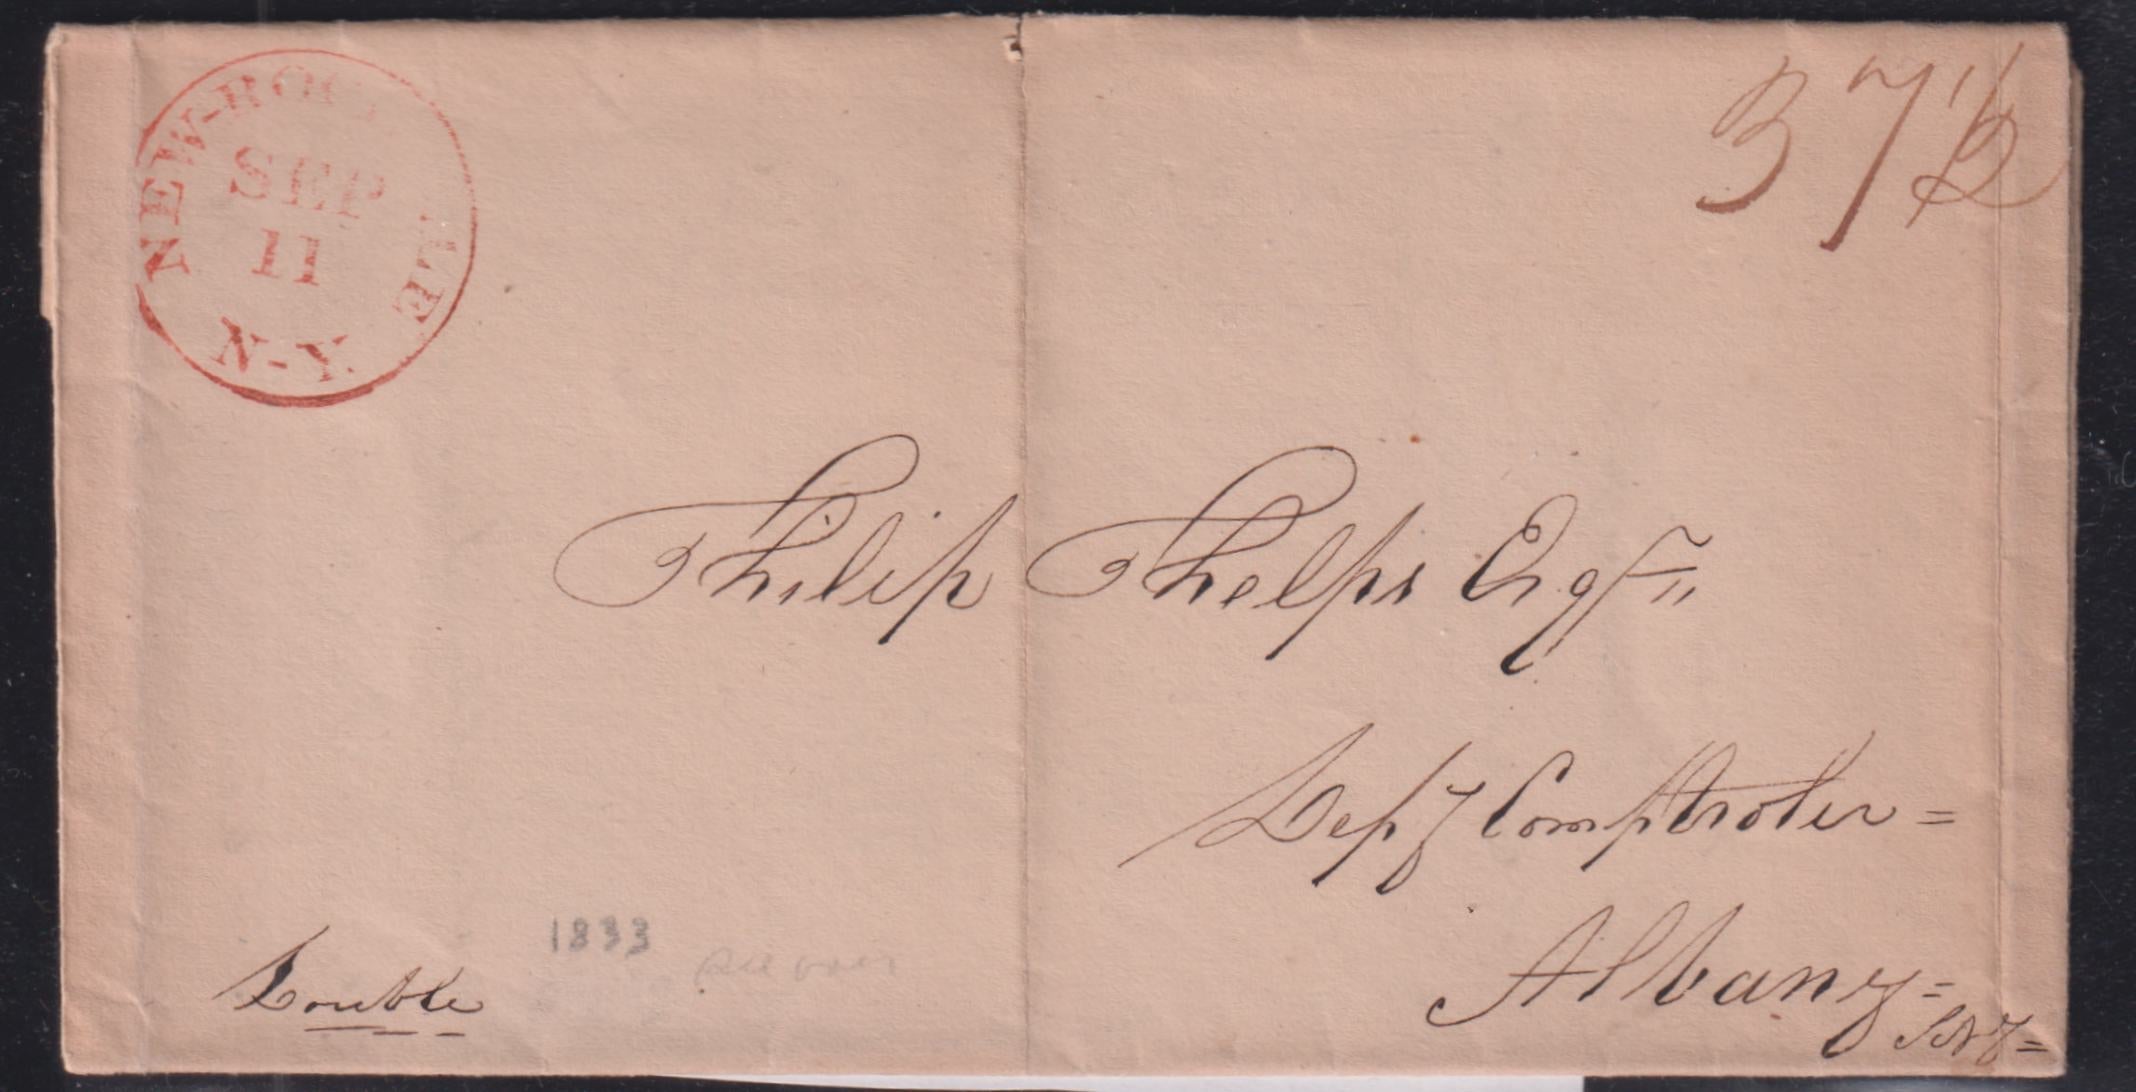 NEW-ROC LE
SEP
11
N-Y
37½
Philip Phelps Esqr
Depy Comptroler =
Albany =
Double
1833
see over